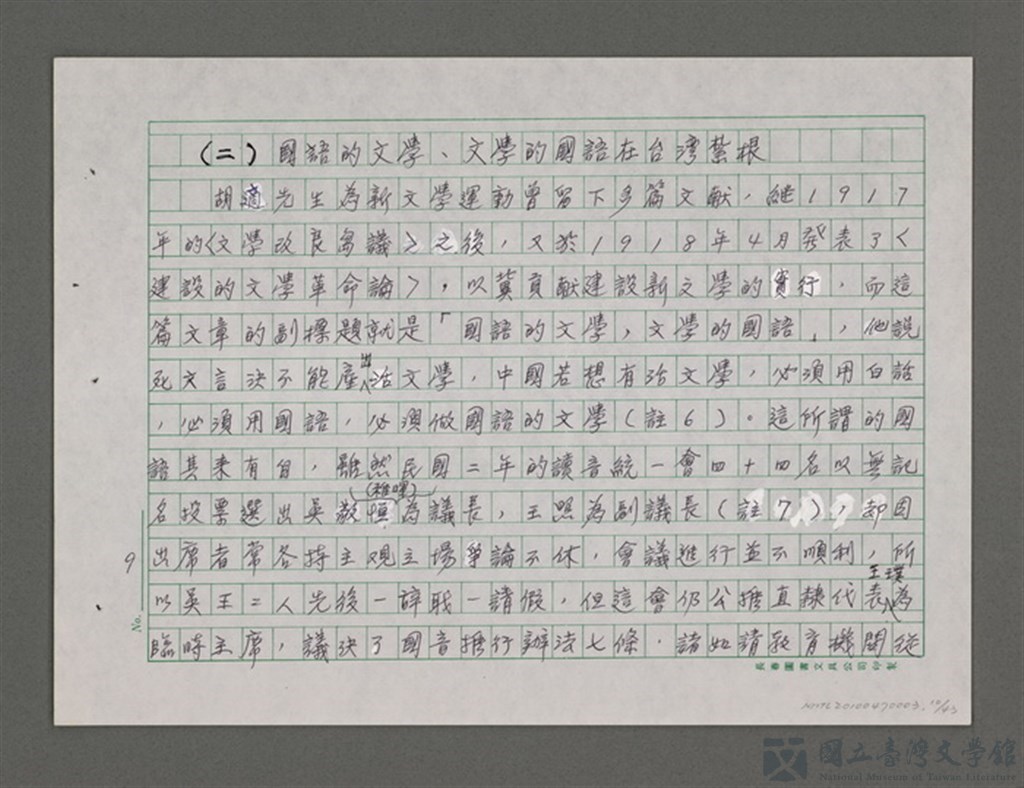 (二)國語的文學、文學的國語在台湾紮根
胡適先生為新文學運動曾留下多篇文献,繼1917
年的〈文學改良芻議〉之後,又於1918年4月發表了〈
建設的文學革命論〉,以冀貢献建設新文學的實行,而這
篇文章的副標題就是「國語的文學,文學的國語」,他說
死文言決不能產出活文學,中國若想有活文學,必須用白話
,必須用國語,必須做國語的文學(註6)。這所謂的國
語其来有自,雖然民國二年的讀音統一會四十四名以無記
名投票選出吳敬恒(稚暉)為議長,王照為副議長(註7),却因
出席者常各持主观立場爭論不休,會議進行並不順利,所
以吳王二人先後一辞职一請假,但這會仍公推直隸代表王璞為
臨時主席,議決了國音推行辦法七條,諸如請教育機関從
9
No.
長春圖書文具公司印製
NMTL20100470003.10/43
國立臺灣文學館
National Museum of Taiwan Literature